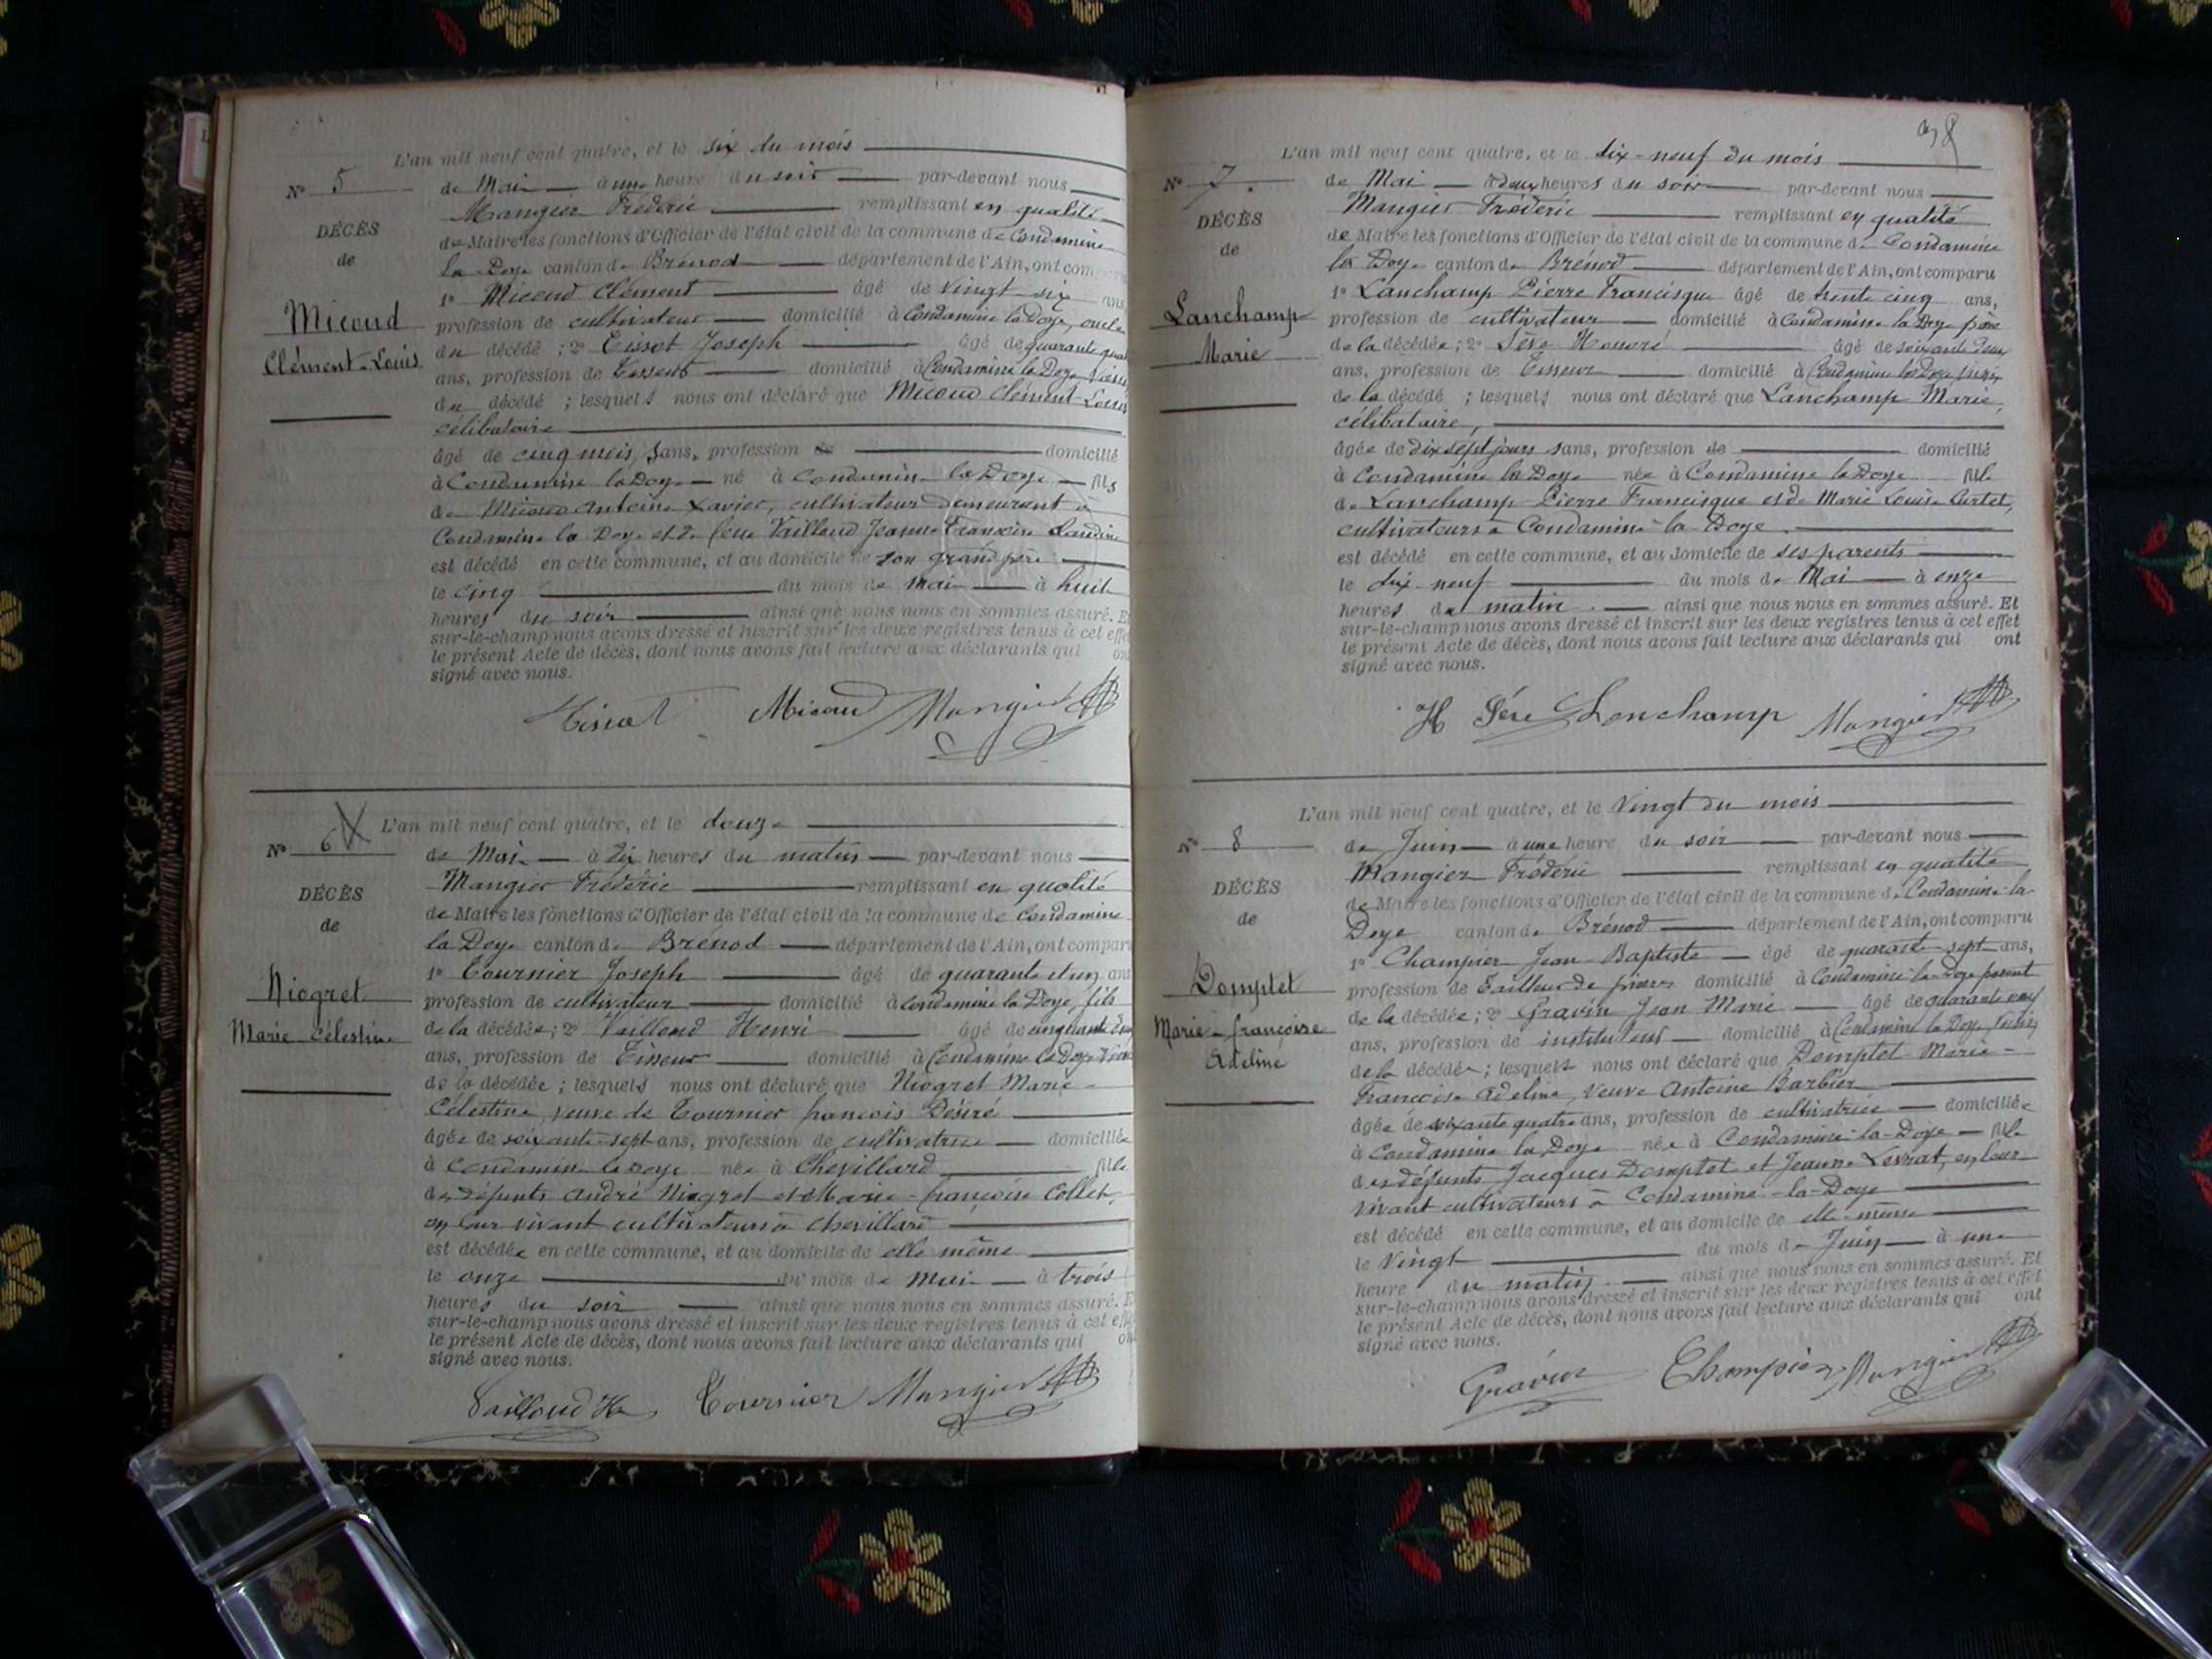 L'an mil neuf cent quatre, et le six du mois
N° 5
de Mai à une heure du soir par-devant nous
Mangier Fréderic remplissant en qualité
DÉCÈS
de Maire les fonctions d'Officier de l'état civil de la commune de Condamine
de
la Doye canton de Brénod département de l'Ain, ont com
1° Micoud Clément âgé de vingt-six ans
Micoud
profession de cultivateur domicilié à Condamine la Doye, oncle
Clément-Louis
du décédé ; 2° Tissot Joseph âgé de quarante
ans, profession de Tisseur domicilié à Condamine la Doye
du décédé ; lesquels nous ont déclaré que Micoud Clément Louis
célibataire
âgé de cinq mois, sans, profession de domicilié
à Condamine la Doye né à Condamine la Doye fils
de Micoud Antoine Xavier, cultivateur demeurant à
Condamine la Doye et de feue Vailloud Jeanne Françoise Claudine
est décédé en cette commune, et au domicile de son grand père
le cinq du mois de Mai à huit
heures du soir ainsi que nous nous en sommes assuré. E
sur-le-champ nous avons dressé et inscrit sur les deux registres tenus à cet effe
le présent Acte de décès, dont nous avons fait lecture aux déclarants qui on
signé avec nous.
Tissot Micoud Mangier
L'an mil neuf cent quatre, et le douze
N° 6
de Mai à dix heures du matin par-devant nous
Mangier Fréderic remplissant en qualité
DÉCÈS
de Maire les fonctions d'Officier de l'état civil de la commune de Condamine
de
la Doye canton de Brénod département de l'Ain, ont compar
1° Tournier Joseph âgé de quarante et un ans
Niogret
profession de cultivateur domicilié à Condamine la Doye, fils
Marie-Célestine
de la décédée ; 2° Vailloud Henri âgé de cinquante
ans, profession de Tisseur domicilié à Condamine la Doye
de la décédée ; lesquels nous ont déclaré que Niogret Marie-
Célestine, veuve de Tournier françois Désiré
âgée de soixante-sept ans, profession de cultivatrice domiciliée
à Condamine la Doye née à Chevillard fille
des défunts André Niogret et de Marie-françoise Collet,
en leur vivant cultivateurs à Chevillard
est décédée en cette commune, et au domicile de elle même
le onze du mois de Mai à trois
heures du soir ainsi que nous nous en sommes assuré. E
sur-le-champ nous avons dressé et inscrit sur les deux registres tenus à cet eff
le présent Acte de décès, dont nous avons fait lecture aux déclarants qui on
signé avec nous.
Vailloud H Tournier Mangier
38
L'an mil neuf cent quatre, et le dix-neuf du mois
N° 7.
de Mai à deux heures du soir par-devant nous
Mangier Fréderic remplissant en qualité
DÉCÈS
de Maire les fonctions d'Officier de l'état civil de la commune de Condamine
de
la Doye canton de Brénod département de l'Ain, ont comparu
1° Lanchamp Pierre Francisque âgé de trente cinq ans,
Lanchamp
profession de cultivateur domicilié à Condamine la Doye père
Marie
de la décédée ; 2° Sève Honoré âgé de soixante deux
ans, profession de Tisseur domicilié à Condamine la Doye
de la décédé ; lesquels nous ont déclaré que Lanchamp Marie,
célibataire,
âgée de dix sept jours sans, profession de domicilié
à Condamine la Doye née à Condamine la Doye fille
de Lanchamp Pierre Francisque et de Marie Louise Curtet,
cultivateurs à Condamine-la-Doye
est décédé en cette commune, et au domicile de ses parents
le dix-neuf du mois de Mai à onze
heures du matin. ainsi que nous nous en sommes assuré. Et
sur-le-champ nous avons dressé et inscrit sur les deux registres tenus à cet effet
le présent Acte de décès, dont nous avons fait lecture aux déclarants qui ont
signé avec nous.
H Sève Lanchamp Mangier
L'an mil neuf cent quatre, et le Vingt du mois
N° 8
de Juin à une heure du soir par-devant nous
Mangier Fréderic remplissant en qualité
DÉCÈS
de Maire les fonctions d'Officier de l'état civil de la commune de Condamine-la-
de
Doye canton de Brénod département de l'Ain, ont comparu
1° Champier Jean-Baptiste âgé de quarante-sept ans,
Domptet
profession de Tailleur de pierres domicilié à Condamine-la-Doye parent
Marie-françoise
de la décédée ; 2° Gravier Jean Marie âgé de quarante neuf
Adeline
ans, profession de instituteur domicilié à Condamine la Doye, voisin
de la décédée ; lesquels nous ont déclaré que Domptet Marie-
Françoise Adeline, veuve Antoine Barbier
âgée de soixante quatre ans, profession de cultivatrice domiciliée
à Condamine la Doye née à Condamine-la-Doye fille
des défunts Jacques Domptet et Jeanne Levrat, en leur
vivant cultivateurs à Condamine-la-Doye
est décédé en cette commune, et au domicile de elle-même
le Vingt du mois de Juin à une
heure du matin. ainsi que nous nous en sommes assuré. Et
sur-le-champ nous avons dressé et inscrit sur les deux registres tenus à cet effet
le présent Acte de décès, dont nous avons fait lecture aux déclarants qui ont
signé avec nous.
Gravier Champier Mangier